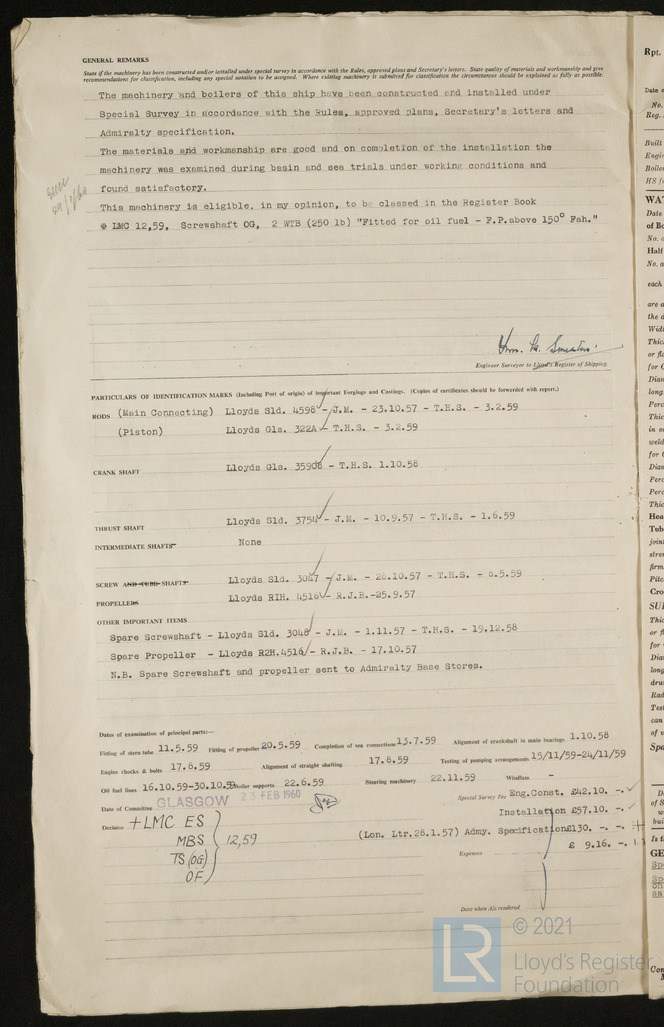 GENERAL REMARKS
State if the machinery has been constructed and/or installed under special survey in accordance with the Rules, approved plans and Secretary's letters. State quality of materials and workmanship and give
recommendations for classification, including any special notation to be assigned. Where existing machinery is submitted for classification the circumstances should be explained as fully as possible.
The machinery and boilers of this ship have been constructed and installed under
Special Survey in accordance with the Rules, approved plans, Secretary's letters and
Admiralty specification.
The materials and workmanship are good and on completion of the installation the
machinery was examined during basin and sea trials under working conditions and
found satisfactory.
This machinery is eligible, in my opinion, to be classed in the Register Book
LMC 12,59, Screwshaft OG, 2 WTB (250 lb) "Fitted for oil fuel - F.P.above 150° Fah."
Engineer Surveyor to Lloyd's Register of Shipping.
PARTICULARS OF IDENTIFICATION MARKS (Including Port of origin) of Important Forgings and Castings. (Copies of certificates should be forwarded with report.)
RODS (Main Connecting) Lloyds Sld. 4598 - J.M. - 23.10.57 - T.H.S. - 3.2.59
(Piston) Lloyds Gls. 322A - T.H.S. - 3.2.59
CRANK SHAFT Lloyds Gls. 35908 - T.H.S. 1.10.58
THRUST SHAFT Lloyds Sld. 3754 - J.M. - 10.9.57 - T.H.S. - 1.6.59
INTERMEDIATE SHAFTS None
SCREW AND TUBE SHAFTS Lloyds Sld. 3047 - J.M. - 28.10.57 - T.H.S. - 8.5.59
PROPELLERS Lloyds RIH. 4516 - R.J.B.-25.9.57
OTHER IMPORTANT ITEMS
Spare Screwshaft - Lloyds Sld. 3048 - J.M. - 1.11.57 - T.H.S. - 19.12.58
Spare Propeller - Lloyds R2H.4516 - R.J.B. - 17.10.57
N.B. Spare Screwshaft and propeller sent to Admiralty Base Stores.
Dates of examination of principal parts:—
Fitting of stern tube 11.5.59 Fitting of propeller 20.5.59 Completion of sea connections 13.7.59 Alignment of crankshaft in main bearings 1.10.58
Engine chocks & bolts 17.8.59 Alignment of straight shafting 17.8.59 Testing of pumping arrangements 15/11/59-24/11/59
Oil fuel lines 16.10.59-30.10.59 Boiler supports 22.6.59 Steering machinery 22.11.59 Windlass -
Special Survey Fee Eng.Const. £42.10. -.
Date of Committee GLASGOW 23 FEB 1960
Installation £57.10. -.
Decision +LMC ES
MBS 12,59
TS (OG)
OF
(Lon. Ltr.28.1.57) Admy. Specification £130. -. -.
£ 9.16. -.
Expenses
Date when A/c rendered
LR
© 2021
Lloyd's Register
Foundation
Rpt.